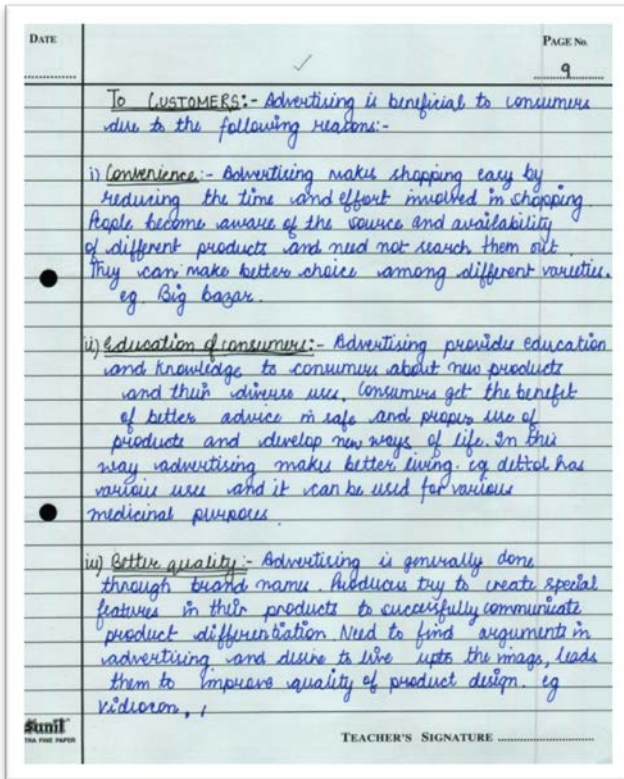 DATE
PAGE No.
9
To CUSTOMERS:- Advertising is beneficial to consumers
due to the following reasons:-
i) Convenience:- Advertising makes shopping easy by
reducing the time and effort involved in shopping.
People become aware of the source and availability
of different products and need not search them out.
They can make better choice among different varieties.
eg. Big bazar.
ii) Education of consumers:- Advertising provides education
and knowledge to consumers about new products
and their diverse uses. Consumers get the benefit
of better advice in safe and proper use of
products and develop new ways of life. In this
way advertising makes better living. eg dettol has
various uses and it can be used for various
medicinal purposes.
iii) Better quality:- Advertising is generally done
through brand names. Producers try to create special
features in their products to successfully communicate
product differentiation. Need to find arguments in
advertising and desire to live upto the image, leads
them to improve quality of product design. eg
Vidiocon, ,
Sunil
TRA FINE PAPER
TEACHER'S SIGNATURE